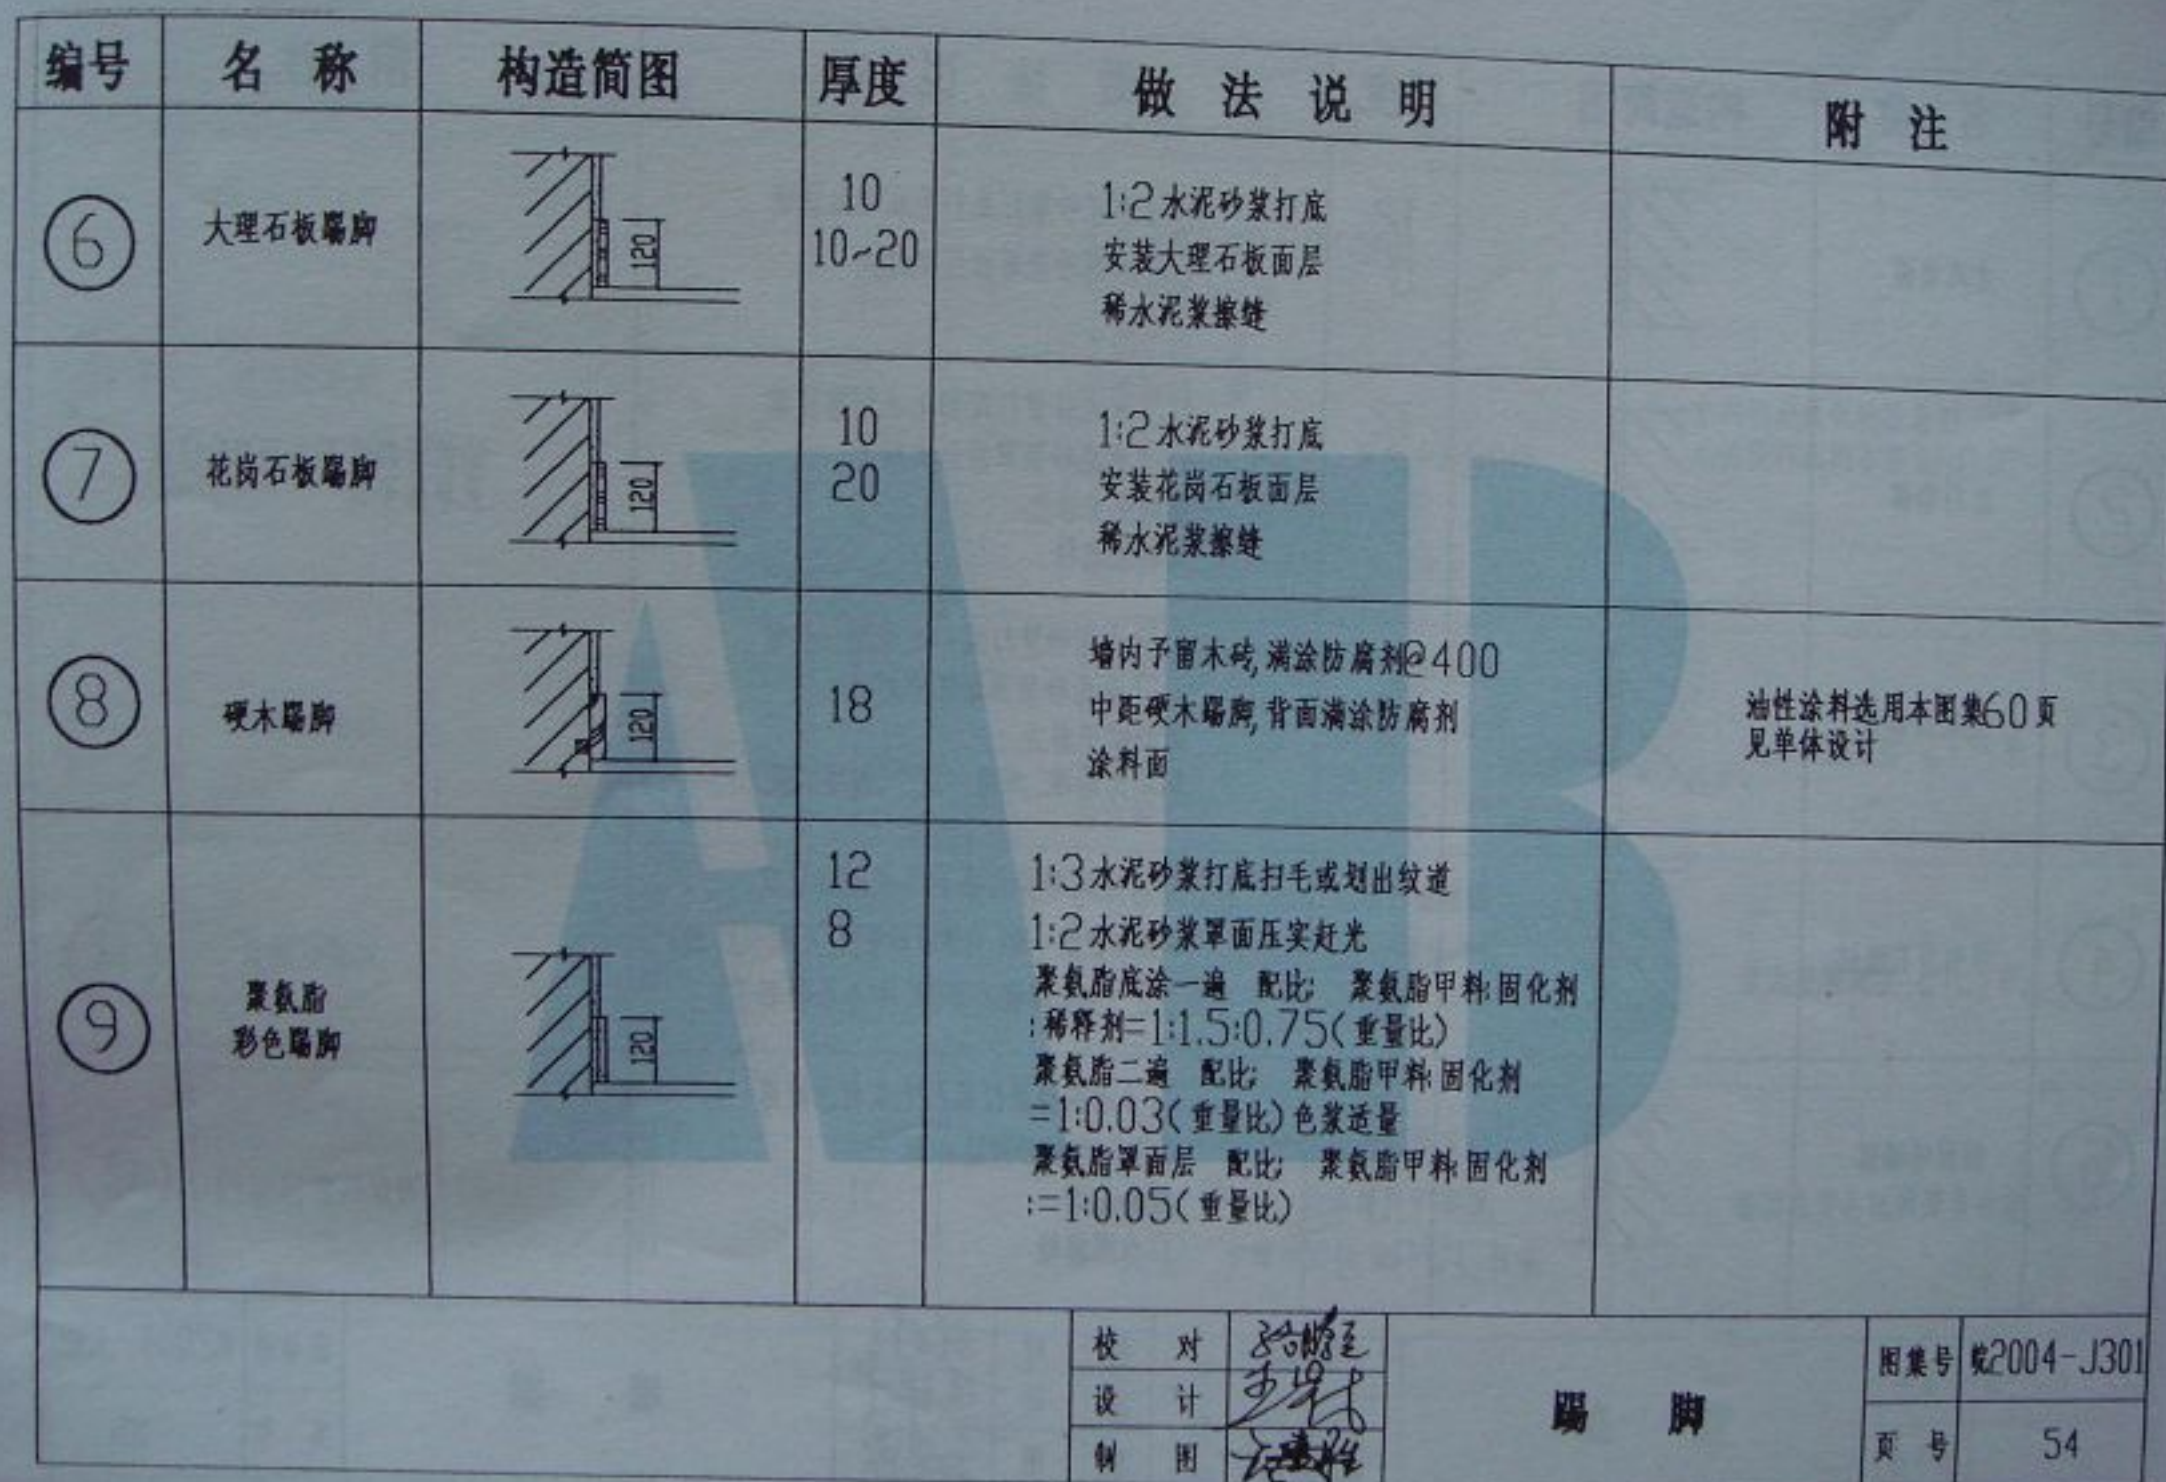 编号 名称 构造简图 厚度 做法说明 附注
6 大理石板踢脚 120
10
10~20
1:2水泥砂浆打底
安装大理石板面层
稀水泥浆擦缝
7 花岗石板踢脚 120
10
20
1:2水泥砂浆打底
安装花岗石板面层
稀水泥浆擦缝
8 硬木踢脚 120
18
墙内予留木砖,满涂防腐剂@400
中距硬木踢脚,背面满涂防腐剂
涂料面
油性涂料选用本图集60页
见单体设计
9 聚氨脂
彩色踢脚
120
12
8
1:3水泥砂浆打底扫毛或划出纹道
1:2水泥砂浆罩面压实赶光
聚氨脂底涂一遍 配比: 聚氨脂甲料:固化剂
:稀释剂=1:1.5:0.75(重量比)
聚氨脂二遍 配比: 聚氨脂甲料:固化剂
=1:0.03(重量比)色浆适量
聚氨脂罩面层 配比: 聚氨脂甲料:固化剂
:=1:0.05(重量比)
校对
设计
制图
踢脚
图集号 皖2004-J301
页号 54
AJB